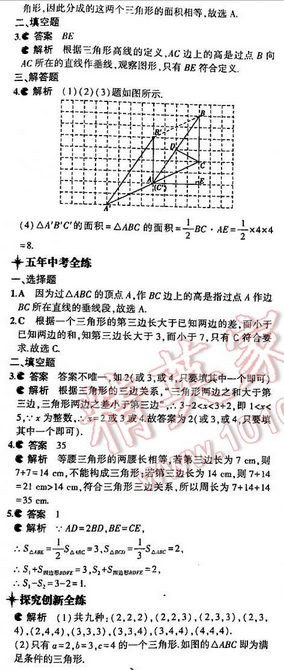 角形,因此分成的这两个三角形的面积相等,故选 A.
二、填空题
3. 答案 BE
解析 根据三角形高线的定义,AC 边上的高是过点 B 向
AC 所在的直线作垂线,观察图形,只有 BE 符合定义.
三、解答题
4. 解析 (1)(2)(3)题如图所示.
B
B'
D
C
A
(C')
E
A'
(4)△A'B'C'的面积=△ABC 的面积=1/2 BC·AE=1/2×4×4
=8.
五年中考全练
一、选择题
1.A 因为过△ABC 的顶点 A,作 BC 边上的高是指过点 A 作边
BC 所在直线的垂线段,故选 A.
2.C 根据一个三角形的第三边长大于已知两边的差,而小于
已知两边的和,知第三边长大于 3,而小于 7,只有 C 符合要
求.故选 C.
二、填空题
3. 答案 答案不唯一,如 2(或 3,或 4,只要填其中一个即可)
解析 根据三角形的三边关系,“三角形两边之和大于第
三边,三角形两边之差小于第三边”,∴3-2<x<3+2,即 1<x<
5,∵x 为整数,∴x=2 或 3 或 4.故答案为 2(或 3,或 4,只要填
其中一个即可).
4. 答案 35
解析 等腰三角形的两腰长相等,若第三边长为 7 cm,则
7+7=14 cm,不能构成三角形;若第三边长为 14 cm,则 7+14
=21 cm>14 cm,符合三角形三边关系,所以周长为 7+14+14
=35 cm.
5. 答案 1
解析 ∵AD=2BD,BE=CE,
∴S△ABE=1/2 S△ABC=3,S△BCD=1/3 S△ABC=2,
∴S1+S四边形BDFE=3,S2+S四边形BDFE=2,
∴S1-S2=3-2=1.
探究创新全练
解析 (1)共九种:(2,2,2),(2,2,3),(2,3,3),(2,3,
4),(2,4,4),(3,3,3),(3,3,4),(3,4,4),(4,4,4).
(2)只有 a=2,b=3,c=4 的一个三角形.如图的△ABC 即为满
足条件的三角形.